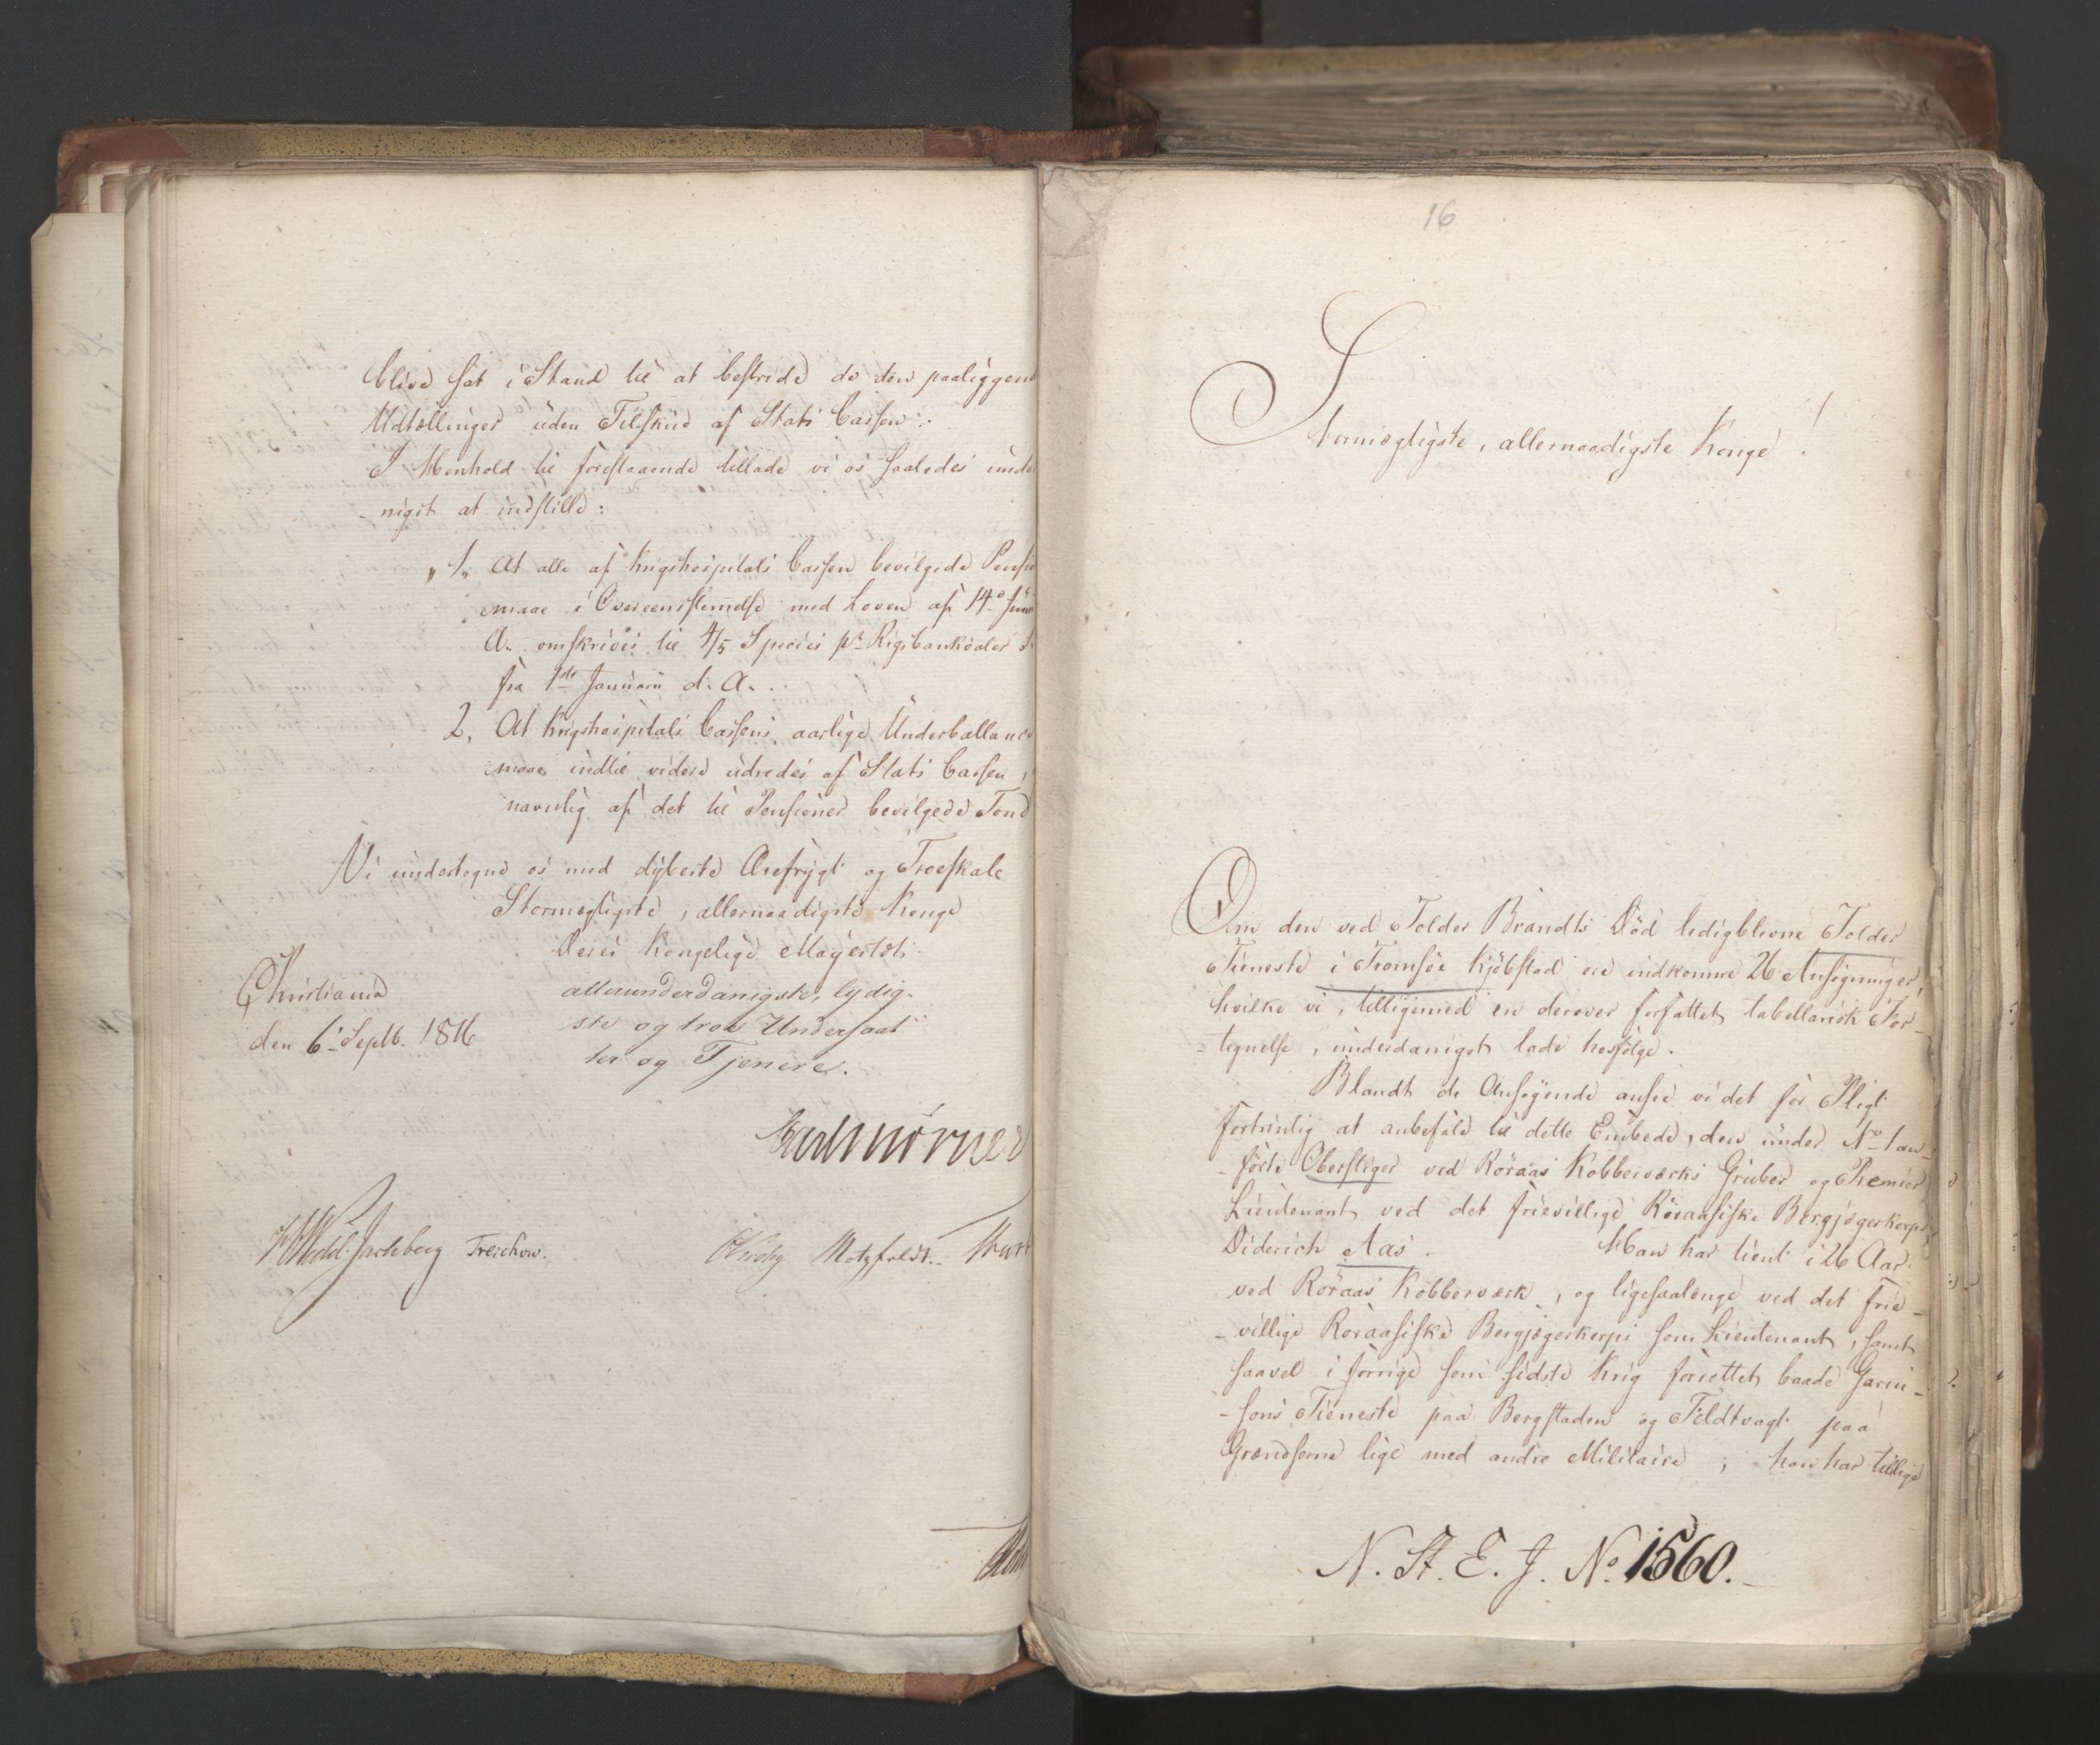 blive sat i Stand til at bestride de den paaliggend
Udtællinger uden Tilskud af Stats Cassen.
I Menhold til forestaaende tillade vi os saaledes unde
-nigst at indstille:
"1, At alle af Krigshospitals Cassen bevilgede Pensi
maae i Overeensstemmelse med Loven af 14de Juni
A. omskrives til 4/5 Species pr Rigsbankdaler S.
fra 1ste Januarii d. A.
2, At Krigshospitals Cassens aarlige Underballance
maae indtil videre udredes af Stats Cassen,
navnlig af det til Pensioner bevilgede Fond
Vi undertegne os med dybeste Ærefrygt og Troeskab
Stormægtigste, allernaadigste Konge
Deres Kongelige Mayestæts
allerunderdanigste, lydig-
ste og troe Undersaat
ter og Tjenere.
Christiania
den 6te Septb. 1816
Carl Mörner
Wedel-Jarlsberg Treschow.
Krohg Motzfeldt.
16
Stormægtigste, allernaadigste Konge!
Om den ved Tolder Brandts Död ledigblevne Tolder
Tieneste i Tromsöe Kjöbstad ere indkomne 26 Ansögninger,
hvilke vi, tilligemed en derover forfattet tabellarisk For-
-tegnelse, underdanigst lade hosfölge.
Blandt de Ansögende ansee vi det for Pligt
fortrinlig at anbefale til dette Embede, den under No 1 an-
-förte Oberstiger ved Röraas Kobberværks Gruber og Premier
Lieutenant ved det frievillige Röraasiske Bergjægerkorps
Diderich Aas. Man har tient i 26 Aar
ved Röraas Kobberværk, og ligesaalænge ved det frie-
-villige Röraasiske Bergjægerkorps som Lieutenant, samt
saavel i forrige som sidste Krig forrettet baade Garni-
-sons Tieneste paa Bergstaden og Feldtvagt paa
Grændserne lige med andre Militaire; han har tillige
N. St. E. J. No. 1560.